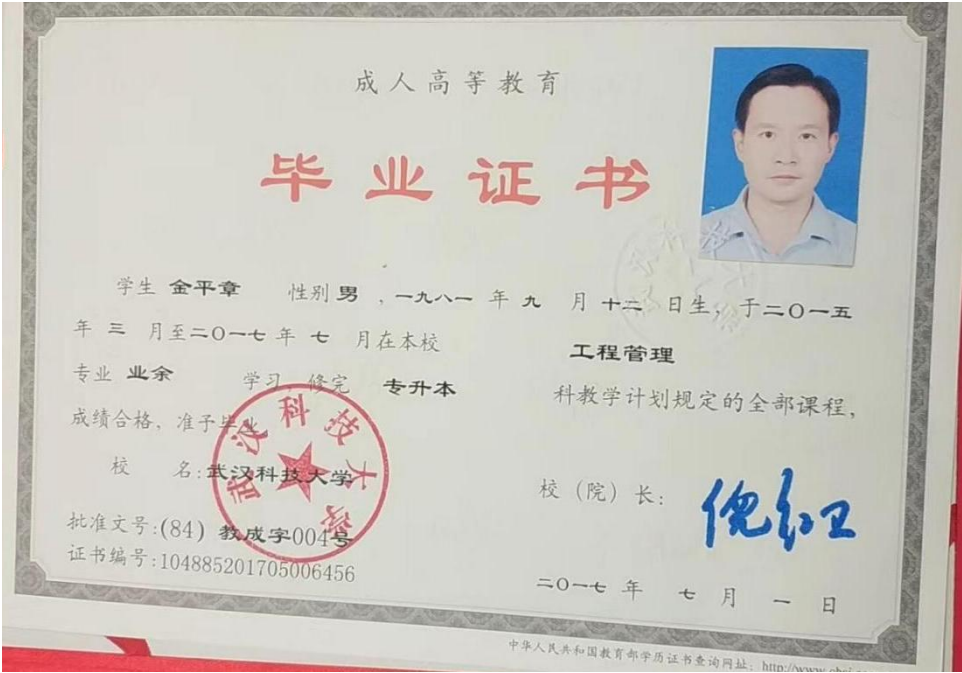 成人高等教育
毕业证书
学生 金平章 性别 男 ,一九八一 年 九 月 十二 日生, 于二〇一五
年 三 月至二〇一七 年 七 月在本校 工程管理
专业 业余 学习, 修完 专升本 科教学计划规定的全部课程,
成绩合格, 准予毕业
校 名:武汉科技大学
校（院）长: 倪红卫
批准文号:(84) 教成字004号
证书编号:104885201705006456
二〇一七 年 七 月 一 日
武汉科技大学
中华人民共和国教育部学历证书查询网址: http://www.chsi